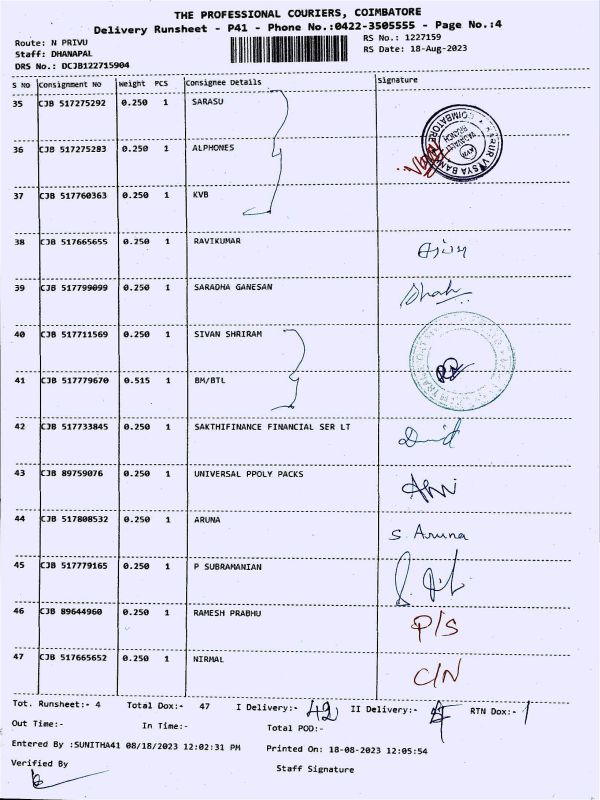 THE PROFESSIONAL COURIERS, COIMBATORE
Delivery Runsheet - P41 - Phone No.:0422-3505555 - Page No.:4
Route: N PRIVU RS No.: 1227159
Staff: DHANAPAL RS Date: 18-Aug-2023
DRS No.: DCJB122715904
S No Consignment No Weight PCS Consignee Details Signature
35 CJB 517275292 0.250 1 SARASU
36 CJB 517275283 0.250 1 ALPHONES
37 CJB 517760363 0.250 1 KVB
KARUR VYSYA BANK
COIMBATORE
38 CJB 517665655 0.250 1 RAVIKUMAR
39 CJB 517799099 0.250 1 SARADHA GANESAN
40 CJB 517711569 0.250 1 SIVAN SHRIRAM
41 CJB 517779670 0.515 1 BM/BTL
42 CJB 517733845 0.250 1 SAKTHIFINANCE FINANCIAL SER LT
43 CJB 89759076 0.250 1 UNIVERSAL PPOLY PACKS
44 CJB 517808532 0.250 1 ARUNA S. Aruna
45 CJB 517779165 0.250 1 P SUBRAMANIAN
46 CJB 89644960 0.250 1 RAMESH PRABHU P/S
47 CJB 517665652 0.250 1 NIRMAL C/N
Tot. Runsheet:- 4 Total Dox:- 47 I Delivery:- 42 II Delivery:- RTN Dox:- 1
Out Time:- In Time:- Total POD:-
Entered By :SUNITHA41 08/18/2023 12:02:31 PM Printed On: 18-08-2023 12:05:54
Verified By Staff Signature